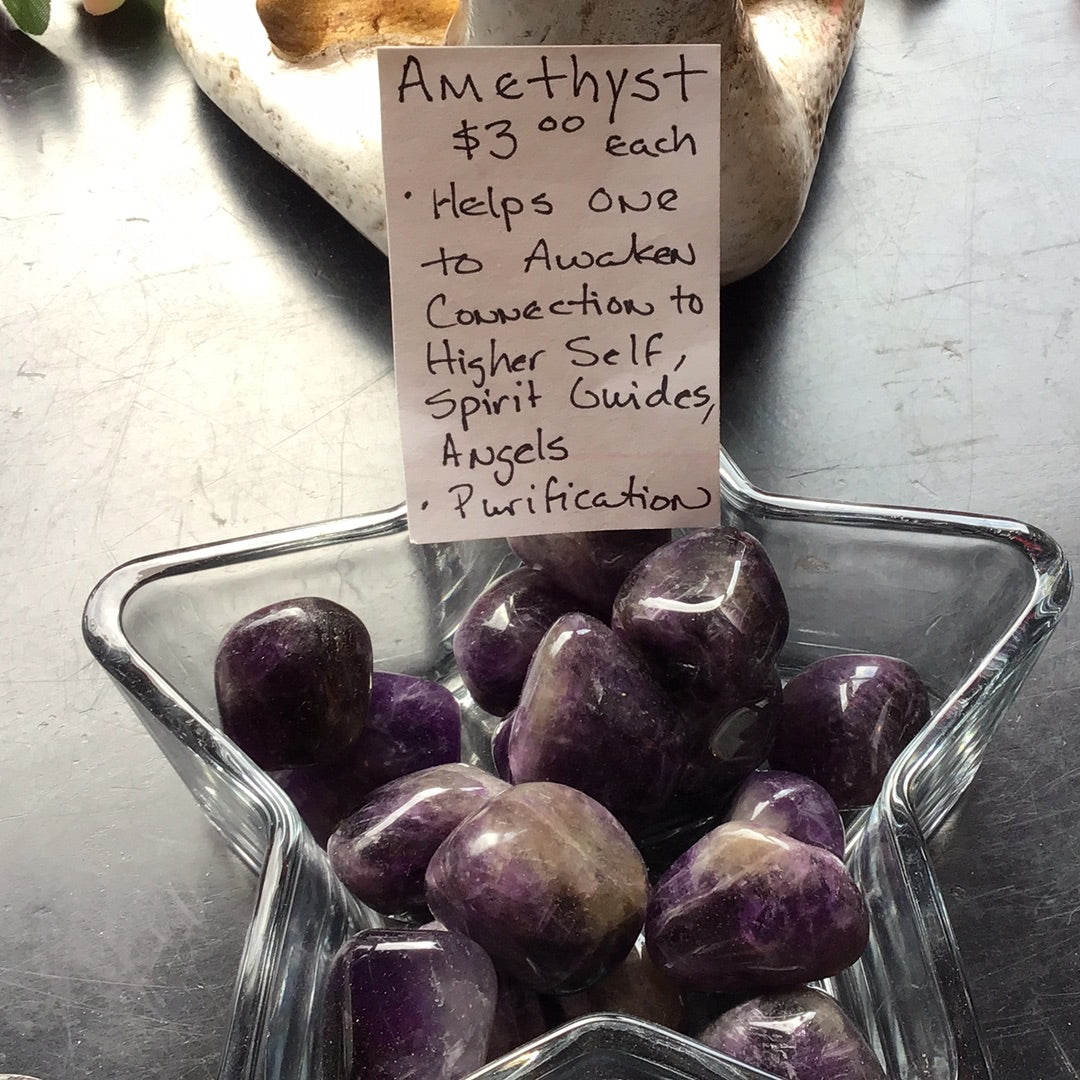 Amethyst
$3.00 each
· Helps one
to Awaken
Connection to
Higher Self,
Spirit Guides,
Angels
· Purification